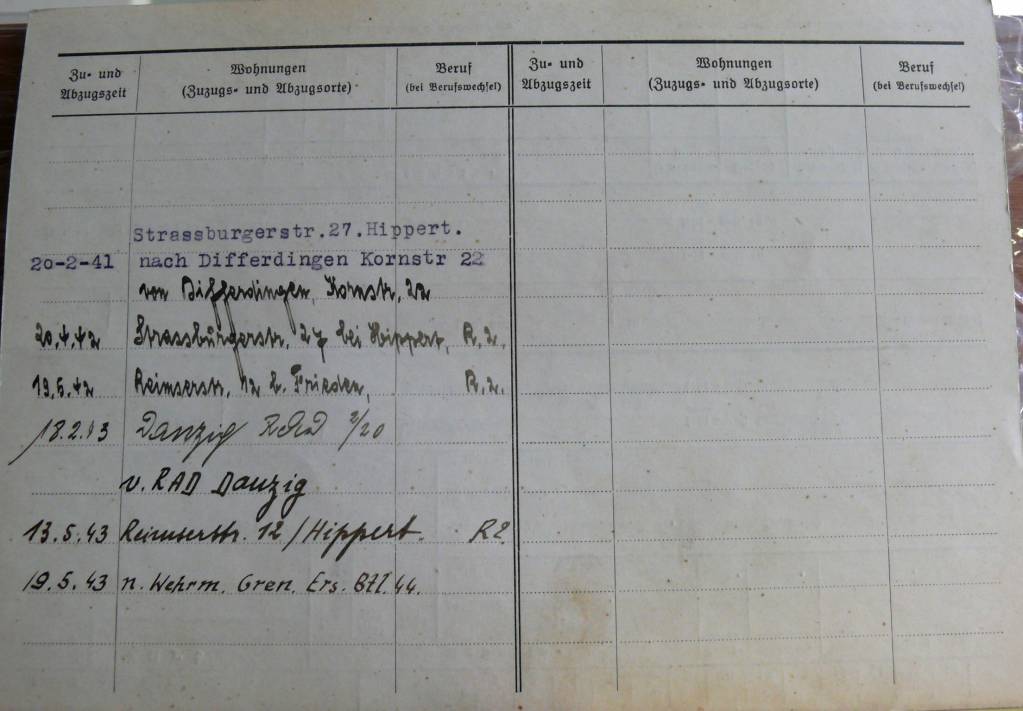 Zu- und Abzugszeit
Wohnungen
(Zuzugs- und Abzugsorte)
Beruf
(bei Berufswechsel)
Zu- und Abzugszeit
Wohnungen
(Zuzugs- und Abzugsorte)
Beruf
(bei Berufswechsel)
Strassburgerstr.27.Hippert.
20-2-41 nach Differdingen Kornstr 22
von Differdingen, Kornstr, 22
20.4.42 Strassburgerstr. 27 bei Hippert, R.2.
19.5.42 Reimserstr, 12 b. Frieden, R.2.
18.2.43 Danzig RAD 2/20
v. RAD Danzig
13.5.43 Reimserstr. 12 / Hippert.
19.5.43 n. Wehrm. Gren. Ers. Btl. 44.